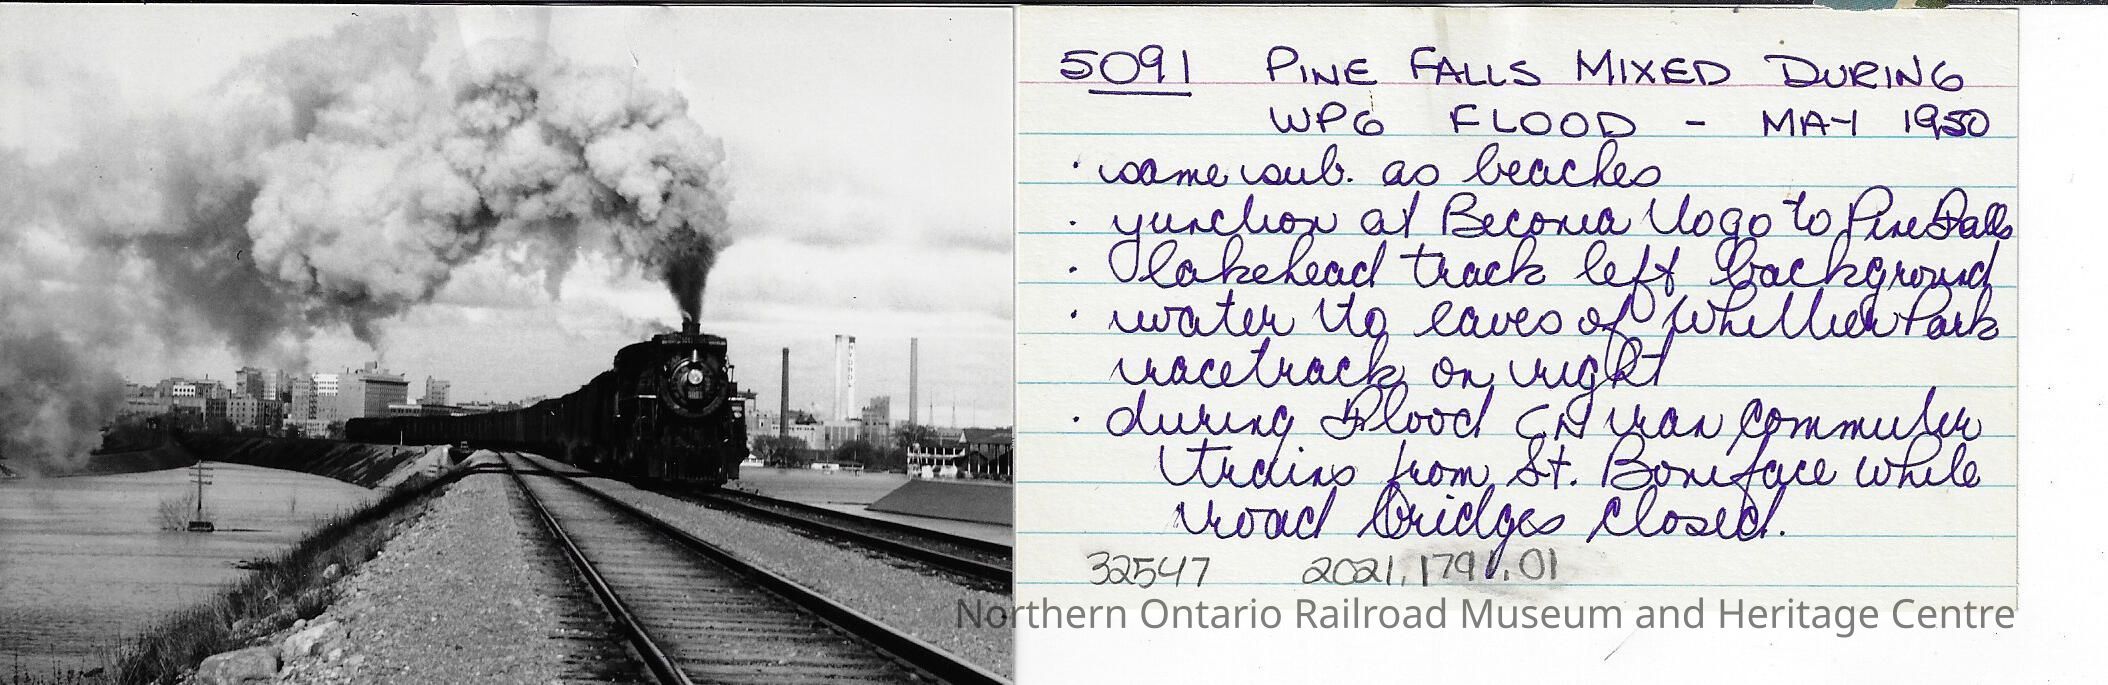 HYDRO
5091
5091 PINE FALLS MIXED DURING
WPG FLOOD - MAY 1950
· same sub. as beaches
· junction at Beconia to go to Pine Falls
· lakehead track left background
· water to eaves of Whittier Park
racetrack on right
· during flood CN ran commuter
trains from St. Boniface while
road bridges closed.
32547 2021.1791.01
Northern Ontario Railroad Museum and Heritage Centre